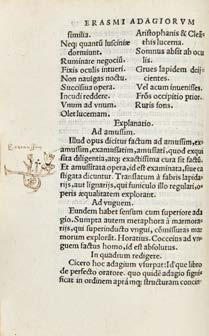 ERASMI ADAGIORVM
similia.
Neq; quantũ lusciniæ
dormiunt.
Ruminare negociũ.
Fixis oculis intueri.
Non nauigas noctu.
Succisiua opera.
Incudi reddere.
Vnum ad vnum.
Olet lucernam.
Aristophanis & Cleã
this lucerna.
Somnus absit ab ocu
lis.
Grues lapidem deglu
tientes.
Vel acum inuenisses.
Frõs occipitio prior.
Ruris fons.
Explanatio.
Ad amussim.
Illud opus dicitur factum ad amussim, ex
amussim, examussatim, amussatim: quod exqui
sita diligentia, atq; exactissima cura sit factũ.
Ex amussim opera, id est examinata, siue ta
stigata dicuntur. Translatum à fabris lapida
rijs, aut lignarijs, qui funiculo illo regulari, o
peris æqualitatem explorant.
Ad vnguem.
Eundem habet sensum cum superiore ada
gio. Sumpta autem metaphora à marmora
rijs, qui superinducto vngue, cõmissuras mar
morum explorãt. Horatius. Cocceius ad vn
guem factus homo, id est absolutus.
In quadrum redigere.
Cicero hoc adagium vsurpat: Id que libro
de perfecto oratore. quo quidẽ adagio signifi
cat in ordinem apta mq; structuram concin